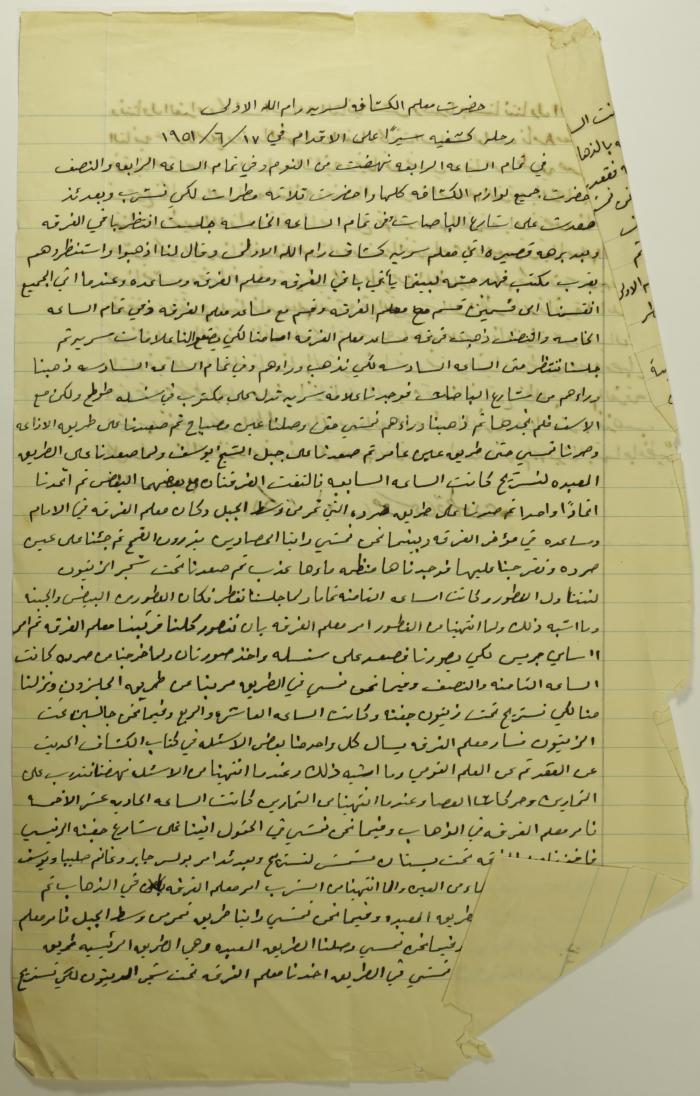 حضرت معلم الكشافه لسريه رام الله الاولى
رحله كشفيه سيرًا على الاقدام في ١٧/٦/١٩٥١
في تمام الساعه الرابعه نهضت من النوم وفي تمام الساعه الرابعه والنصف
حضرت جميع لوازم الكشافه كلها واحضرت ثلاثه مطرات لكي نشرب وبعدئذ
صعدت على شارع الباصات في تمام الساعه الخامسه جلست انتظر باقي الفرقه
وبعد برهه قصيره اتى معلم سريه كشاف رام الله الاولى وقال لنا اذهبوا واستنظروهم
بقرب مكتب فهد حشمه لبينما يأتي باقي الفرقه ومعلم الفرقه ومساعده وعندما اتى الجميع
انقسمنا الى قسمين قسم مع معلم الفرقه وقسم مع مساعد معلم الفرقه وفي تمام الساعه
الخامسه والنصف ذهبت فرقه مساعد معلم الفرقه امامنا لكي يضعو لنا علامات سريه ثم
جلسنا ننتظر حتى الساعه السادسه لكي نذهب وراءهم وفي تمام الساعه السادسه ذهبنا
وراءهم من شارع الباصات فوجدنا علامه سريه تدل على مكتوب في سنسله طوطح ولكن مع
الاسف فلم نجدها ثم ذهبنا وراءهم نمشي حتى وصلنا عين مصباح ثم صعدنا على طريق الاذاعه
وصرنا نمسي حتى طريق عين عامر ثم صعدنا على جبل الشيخ ابو يوسف ولما صعدنا على الطريق
العبده لنستريح كانت الساعه السابعه فالتفت الفرقتان مع بعضهما البعض ثم اتحدنا
اتحادًا واحدا ثم صرنا على طريق صرده التي تمر من وسط الجبل وكان معلم الفرقه في الامام
ومساعده في مؤخر الفرقه وبينما نحن نمشي رأينا الحصادين يذرون القمح ثم جئنا على عين
صرده وتفرجنا عليها فوجدناها منظمه ماءها عذب ثم صعدنا تحت شجر الزيتون
لنتناول الفطور وكانت الساعه الثامنه تماما ولما جلسنا نفطر فكان الفطور من البيض والجبنه
وما اشبه ذلك ولما انتهينا من الفطور امر معلم الفرقه بان نتصور كلنا فرتبنا معلم الفرقه ثم امر
سامي جريس لكي يصورنا فصعد على سنسله واخذ صورتان ولما خرجنا من صرده كانت
الساعه الثامنه والنصف وفيما نحن نمشي في الطريق مررنا عن طريق الجلزون ونزلنا
هنا لكي نستريح تحت زيتون جفنه وكانت الساعه العاشره والربع وفيما نحن جالسين تحت
الزيتون فسار معلم الفرقه يسال كل واحد منا بعض الاسئله في كتاب الكشاف الحديث
عن العقد ثم عن العلم القومي وما اشبه ذلك وعندما انتهينا من الاسئله نهضنا نتدرب على
التمارين وحركات العصا وعندما انتهينا من التمارين كانت الساعه الحاديه عشر الا خمسه
فامر معلم الفرقه في الذهاب وفيما نحن نمشي في الحقول اتينا على شارع جفنه الرئيسي
تحت بستان مشمش لنستريح وبعدئذ امر بولس جابر وغانم صليبا ويوسف
من العين ولما انتهينا من الشرب امر معلم الفرقه في الذهاب ثم
طريق العبده وفيما نحن نمشي رأينا طريق تمر من وسط الجبل فامر معلم
وفيما نحن نمشي وصلنا الطريق العبده وهي الطريق الرئيسيه طريق
نمشي في الطريق اخذنا معلم الفرقه تحت شجر الزيتون لكي نستريح